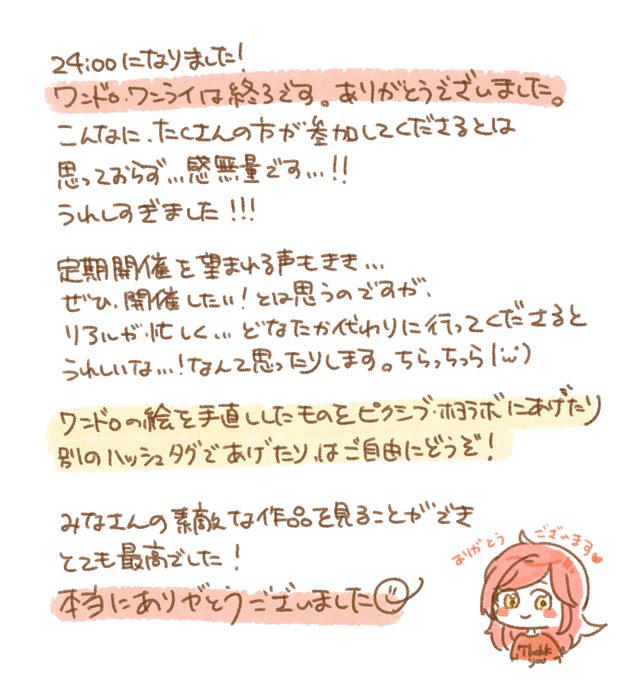 24:00になりました!
ワンドロ.ワンライは終ろです。ありがとうございました。
こんなに、たくさんの方が参加してくださるとは
思っておらず...感無量です...!!
うれしすぎました!!!
定期開催を望まれる声もきき...
ぜひ、開催したい!とは思うのですが、
リアルが忙しく...どなたか代わりに行ってくださると
うれしいな...!なんて思ったりします。ちらっちっら|'ω')
ワンドロの絵を手直ししたものをピクシブ・ホヨラボにあげたり
別のハッシュタグであげたり、はご自由にどうぞ!
みなさんの素敵な作品を見ることができ
とても最高でした!
本当にありがとうございました
ありがとう ございます♥
Thank
you